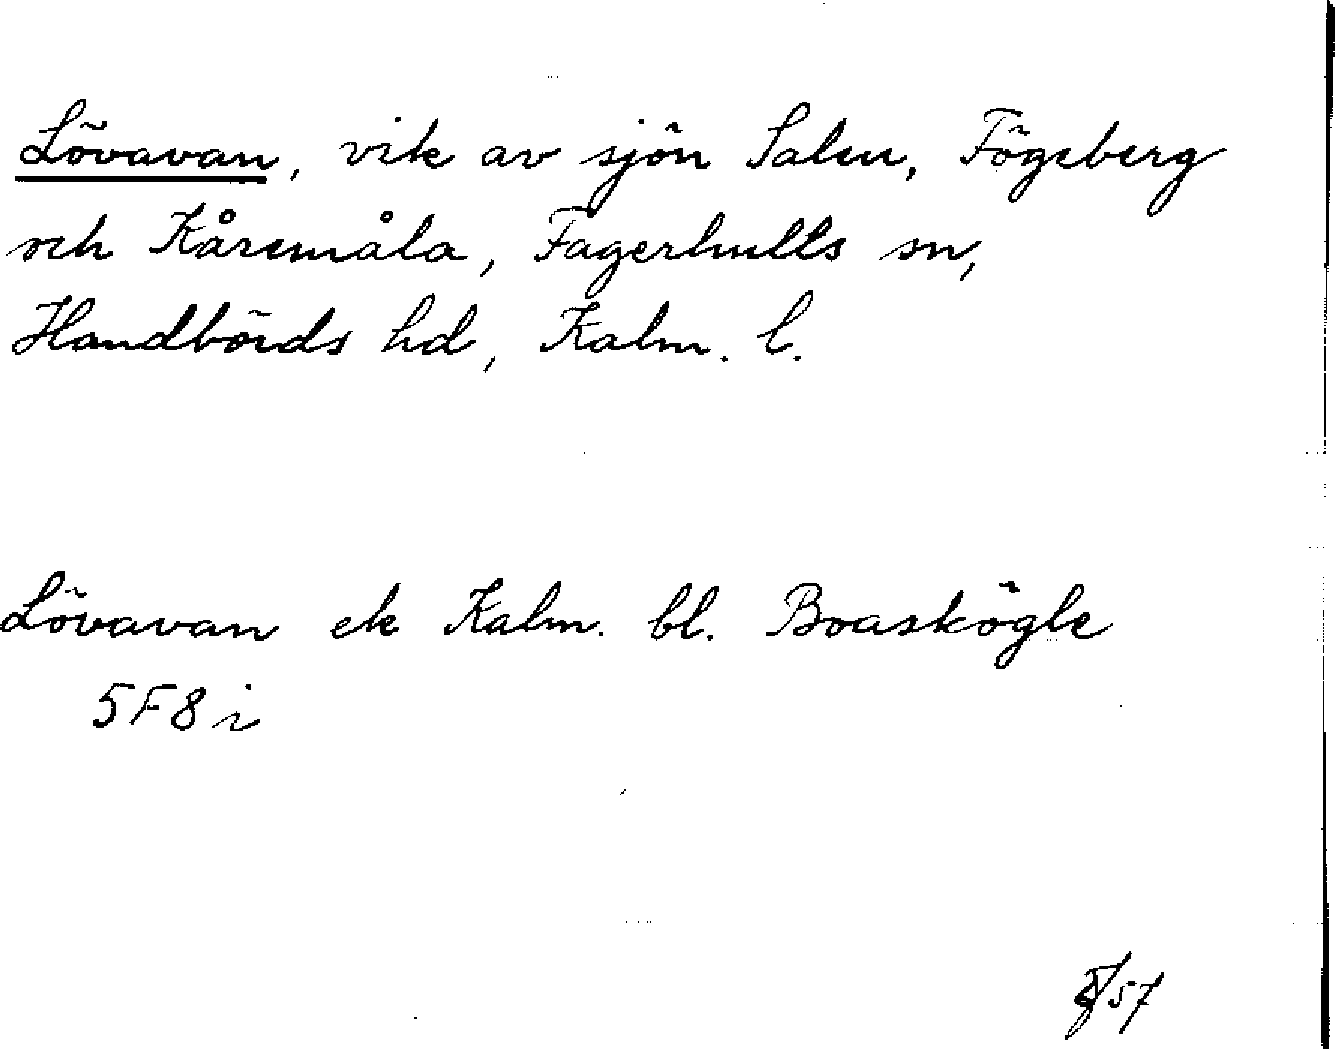 Lövavan, vik av sjön Salen, Fögeberg
och Kåremåla, Fagerhults sn,
Handbörds hd, Kalm. l.
Lövavan ek Kalm. bl. Boaskögle
5F8i
57